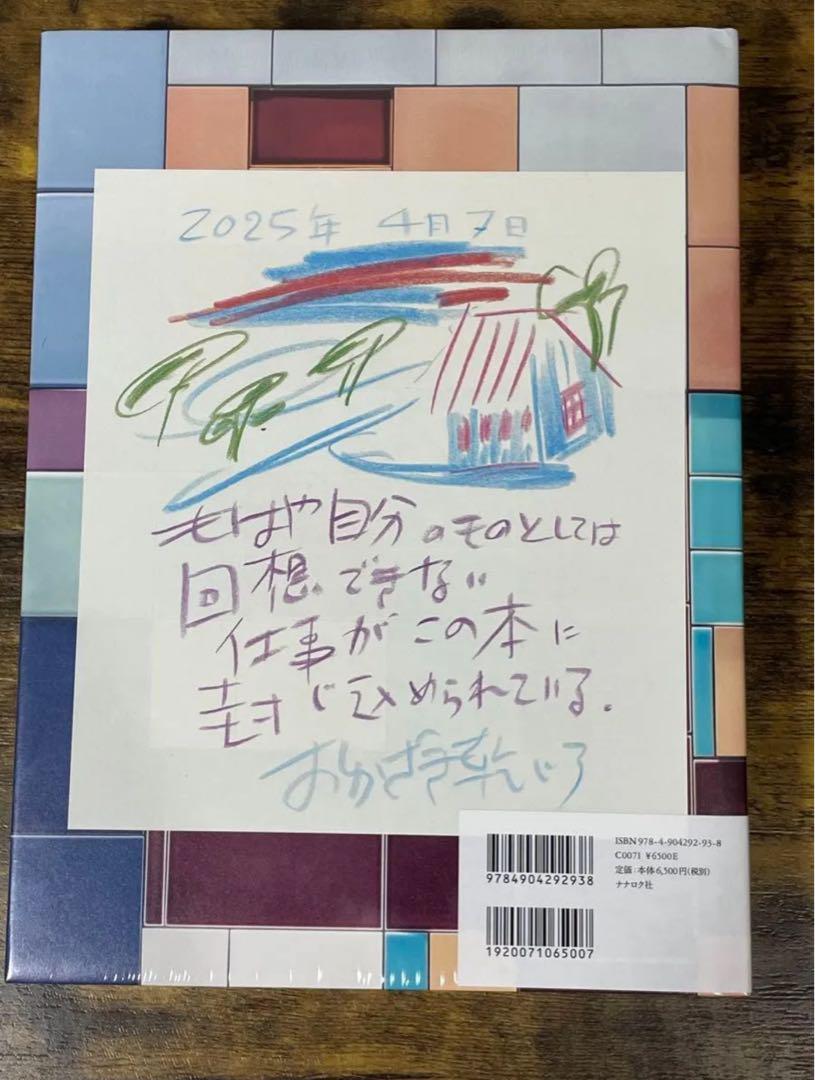 2025年 4月7日
もはや自分のものとしては
回想できない
仕事がこの本に
封じ込められている.
おかざき乾じろ
ISBN 978-4-904292-93-8
C0071 ¥6500E
定価:本体6,500円(税別)
ナナロク社
9784904292938
1920071065007